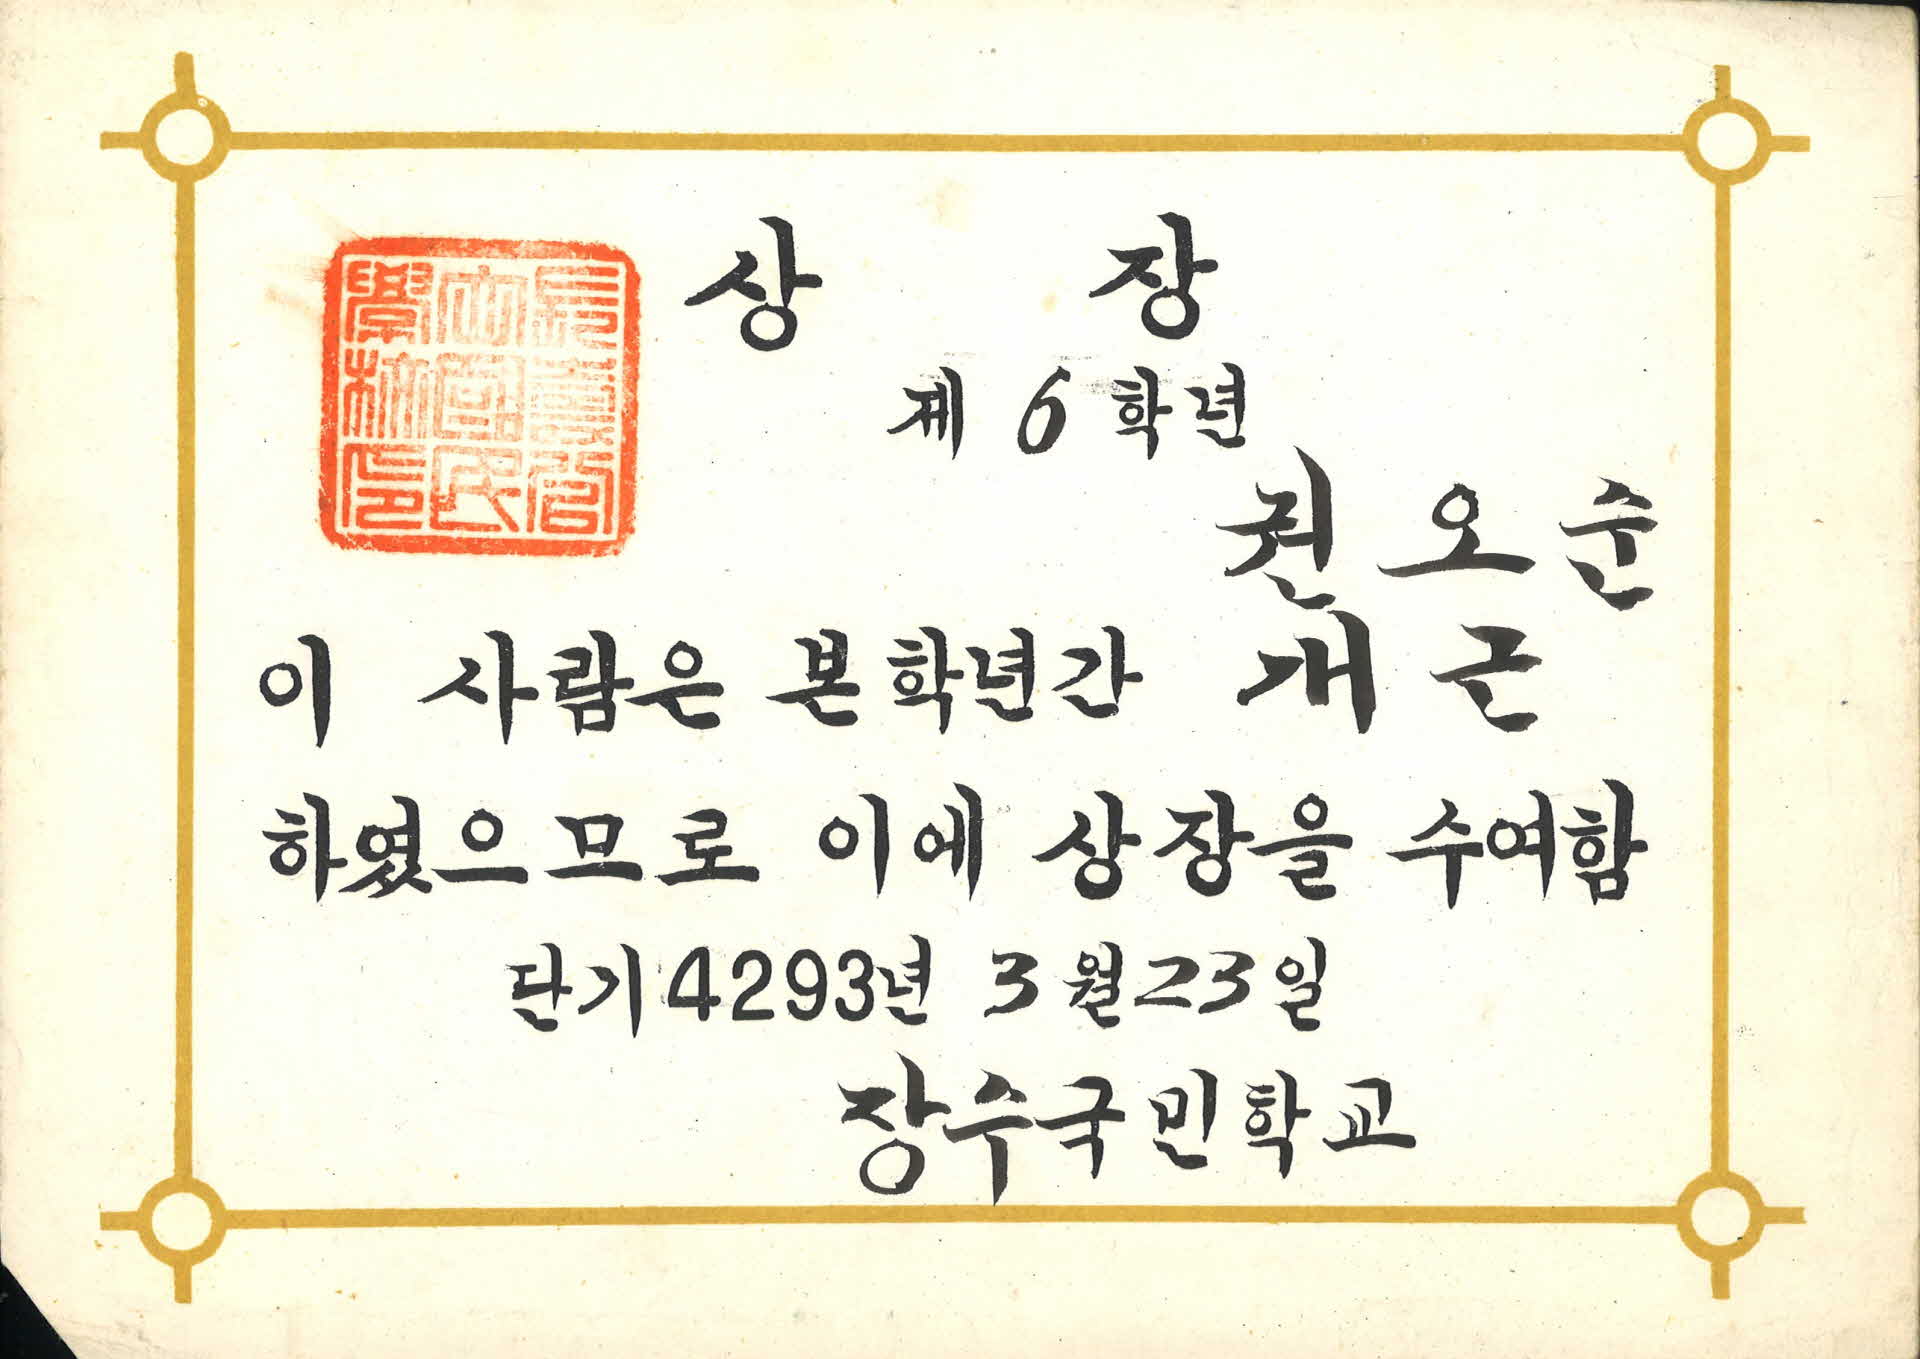 상 장
제 6 학년
권 오 순
이 사람은 본 학년간 개 근
하였으므로 이에 상장을 수여함
단기 4293년 3월 23일
장수국민학교